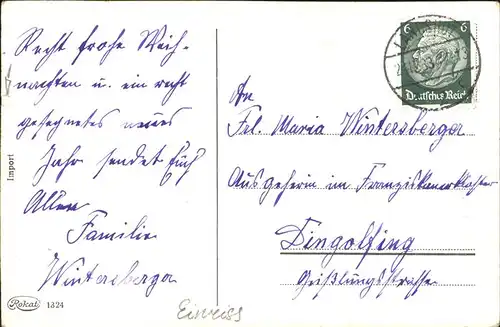 Recht frohe Weih-
nachten u. ein recht
gesegnetes neues
Jahr sendet Euch
Allen
Familie
Wintersberger
Import
Rokal 1324
Einweiss
6
Deutsches Reich
An
Frl. Maria Wintersberger
Ausgeherin im Franziskanerkloster
Dingolfing
Geißlungsstrasse